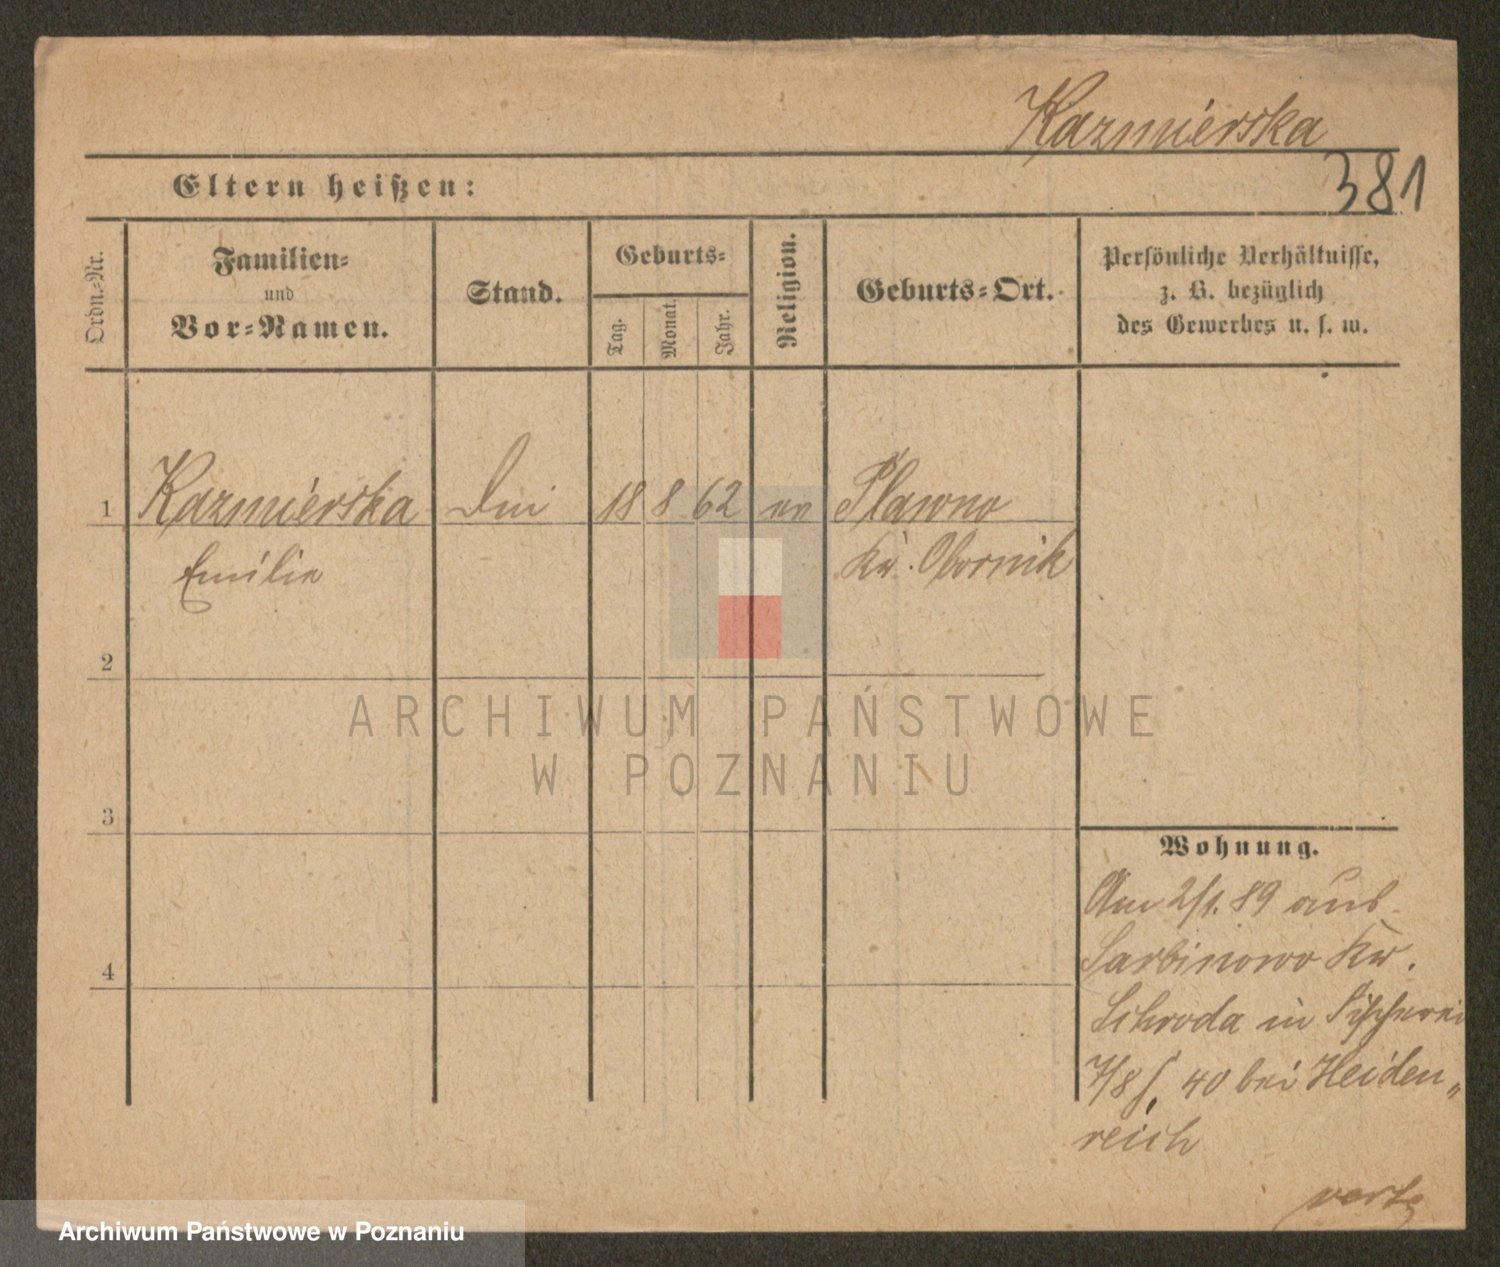 Kazmierska
381
Eltern heißen:
Ordn.-Nr.
Familien-
und
Vor-Namen.
Stand.
Geburts-
Tag.
Monat.
Jahr.
Religion.
Geburts-Ort.
Persönliche Verhältnisse,
z. B. bezüglich
des Gewerbes u. s. w.
1 Kazmierska 18 8 62 Plawno
Emilie Kr. Obornik
2
3
4
Wohnung.
Am 2/1. 89 aus
Sarbinowo Kr.
Schroda in Fischerei
7/8 40 bei Heiden-
reich
ARCHIWUM PAŃSTWOWE
W POZNANIU
Archiwum Państwowe w Poznaniu